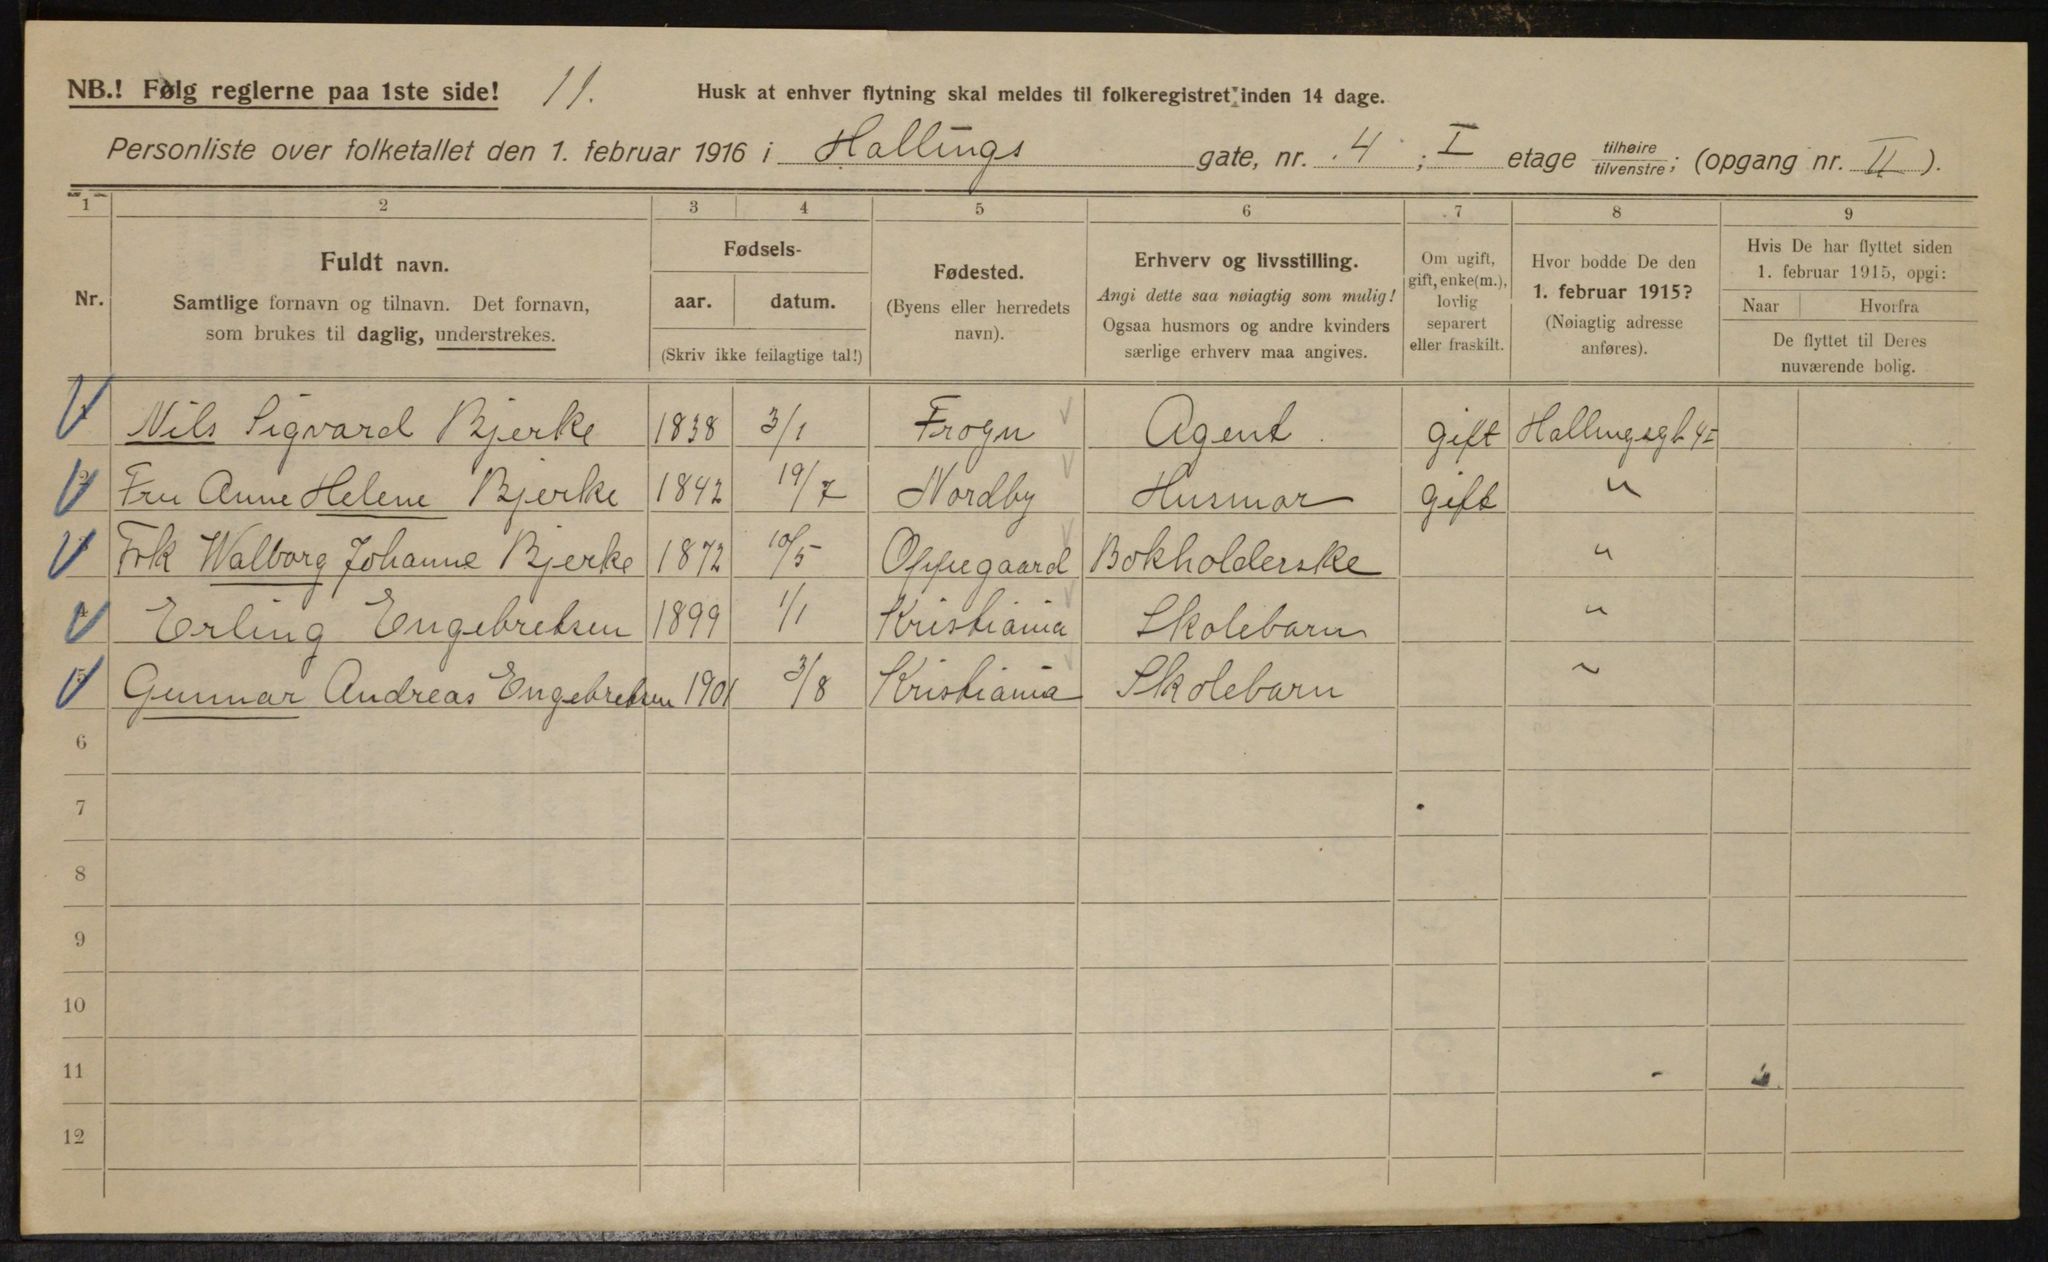 NB.! Følg reglerne paa 1ste side! 11. Husk at enhver flytning skal meldes til folkeregistret inden 14 dage.
Personliste over folketallet den 1. februar 1916 i Hallings gate, nr. 4 ; I etage tilhøire/tilvenstre; (opgang nr. II ).
1 2 3 4 5 6 7 8 9
Nr.
Fuldt navn.
Samtlige fornavn og tilnavn. Det fornavn,
som brukes til daglig, understrekes.
Fødsels-
aar. datum.
(Skriv ikke feilagtige tal!)
Fødested.
(Byens eller herredets
navn).
Erhverv og livsstilling.
Angi dette saa nøiagtig som mulig!
Ogsaa husmors og andre kvinders
særlige erhverv maa angives.
Om ugift,
gift, enke(m.),
lovlig
separert
eller fraskilt.
Hvor bodde De den
1. februar 1915?
(Nøiagtig adresse
anføres).
Hvis De har flyttet siden
1. februar 1915, opgi:
Naar Hvorfra
De flyttet til Deres
nuværende bolig.
1 Nils Sigvard Bjerke 1838 3/1 Frogn Agent. gift Hallingsgt 4 I
2 Fru Anne Helene Bjerke 1842 19/7 Nordby Husmor gift "
3 Frk Walborg Johanne Bjerke 1872 10/5 Oppegaard Bokholderske "
4 Erling Engebretsen 1899 1/1 Kristiania Skolebarn "
5 Gunnar Andreas Engebretsen 1901 3/8 Kristiania Skolebarn "
6
7
8
9
10
11
12